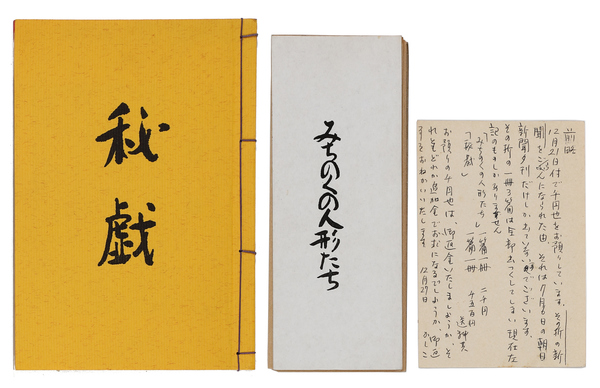 秘戯
みちのくの人形たち
前略
12月21日付で千円也をお預りしています。その折の新
聞をごらんになられた由、それは7月6日の朝日
新聞夕刊だけしか出ていない
その折の一冊3篇は全部なくしてしまい現在左
記のものしかありません
「みちのくの人形たち」一篇一冊 二千円
「秘戯」 一篇一冊 千五百円 送料共
お預りの千円也は、御返金いたしましょうか、そ
れともどれか追加金で なるでしょうか、御返
事をおねがいいたします 12月29日 かしこ